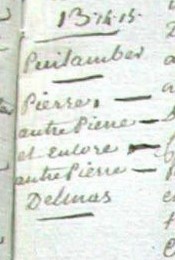 13-14-15-
Puilamber
Pierre. —
autre Pierre —
et Encore —
autre Pierre —
Delmas